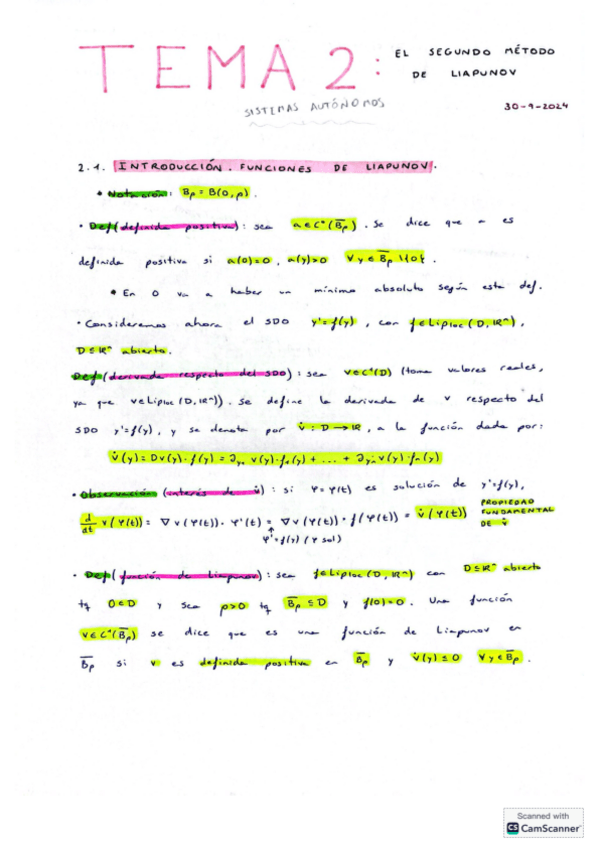 TEMA 2: EL SEGUNDO MÉTODO
DE LIAPUNOV
SISTEMAS AUTÓNOMOS
30-9-2024
2.1. INTRODUCCIÓN. FUNCIONES DE LIAPUNOV.
• Notación: Bρ = B(0,ρ).
• Def (definida positiva): sea a∈C⁰(B̄ρ). Se dice que a es
definida positiva si a(0)=0, a(y)>0 ∀y∈B̄ρ\{0}.
• En 0 va a haber un mínimo absoluto según esta def.
• Consideremos ahora el SDO y'=f(y), con f∈Liploc(D,ℝⁿ),
D⊆ℝⁿ abierto.
Def (derivada respecto del SDO): sea v∈C¹(D) (toma valores reales,
ya que v∈Liploc(D,ℝⁿ)). Se define la derivada de v respecto del
SDO y'=f(y), y se denota por v̇: D→ℝ, a la función dada por:
v̇(y) = Dv(y)·f(y) = ∂y₁ v(y)·f₁(y) + ... + ∂yₙ v(y)·fₙ(y)
• Observación (interés de v̇): si φ=φ(t) es solución de y'=f(y),
d/dt v(φ(t)) = ∇v(φ(t))·φ'(t) = ∇v(φ(t))·f(φ(t)) = v̇(φ(t)) PROPIEDAD FUNDAMENTAL DE v̇
↑
φ'=f(φ) (φ sol)
• Def (función de Liapunov): sea f∈Liploc(D,ℝⁿ) con D⊆ℝⁿ abierto
tq 0∈D y sea ρ>0 tq B̄ρ⊆D y f(0)=0. Una función
v∈C¹(B̄ρ) se dice que es una función de Liapunov en
B̄ρ si v es definida positiva en B̄ρ y v̇(y)≤0 ∀y∈B̄ρ.
Scanned with
CS CamScanner